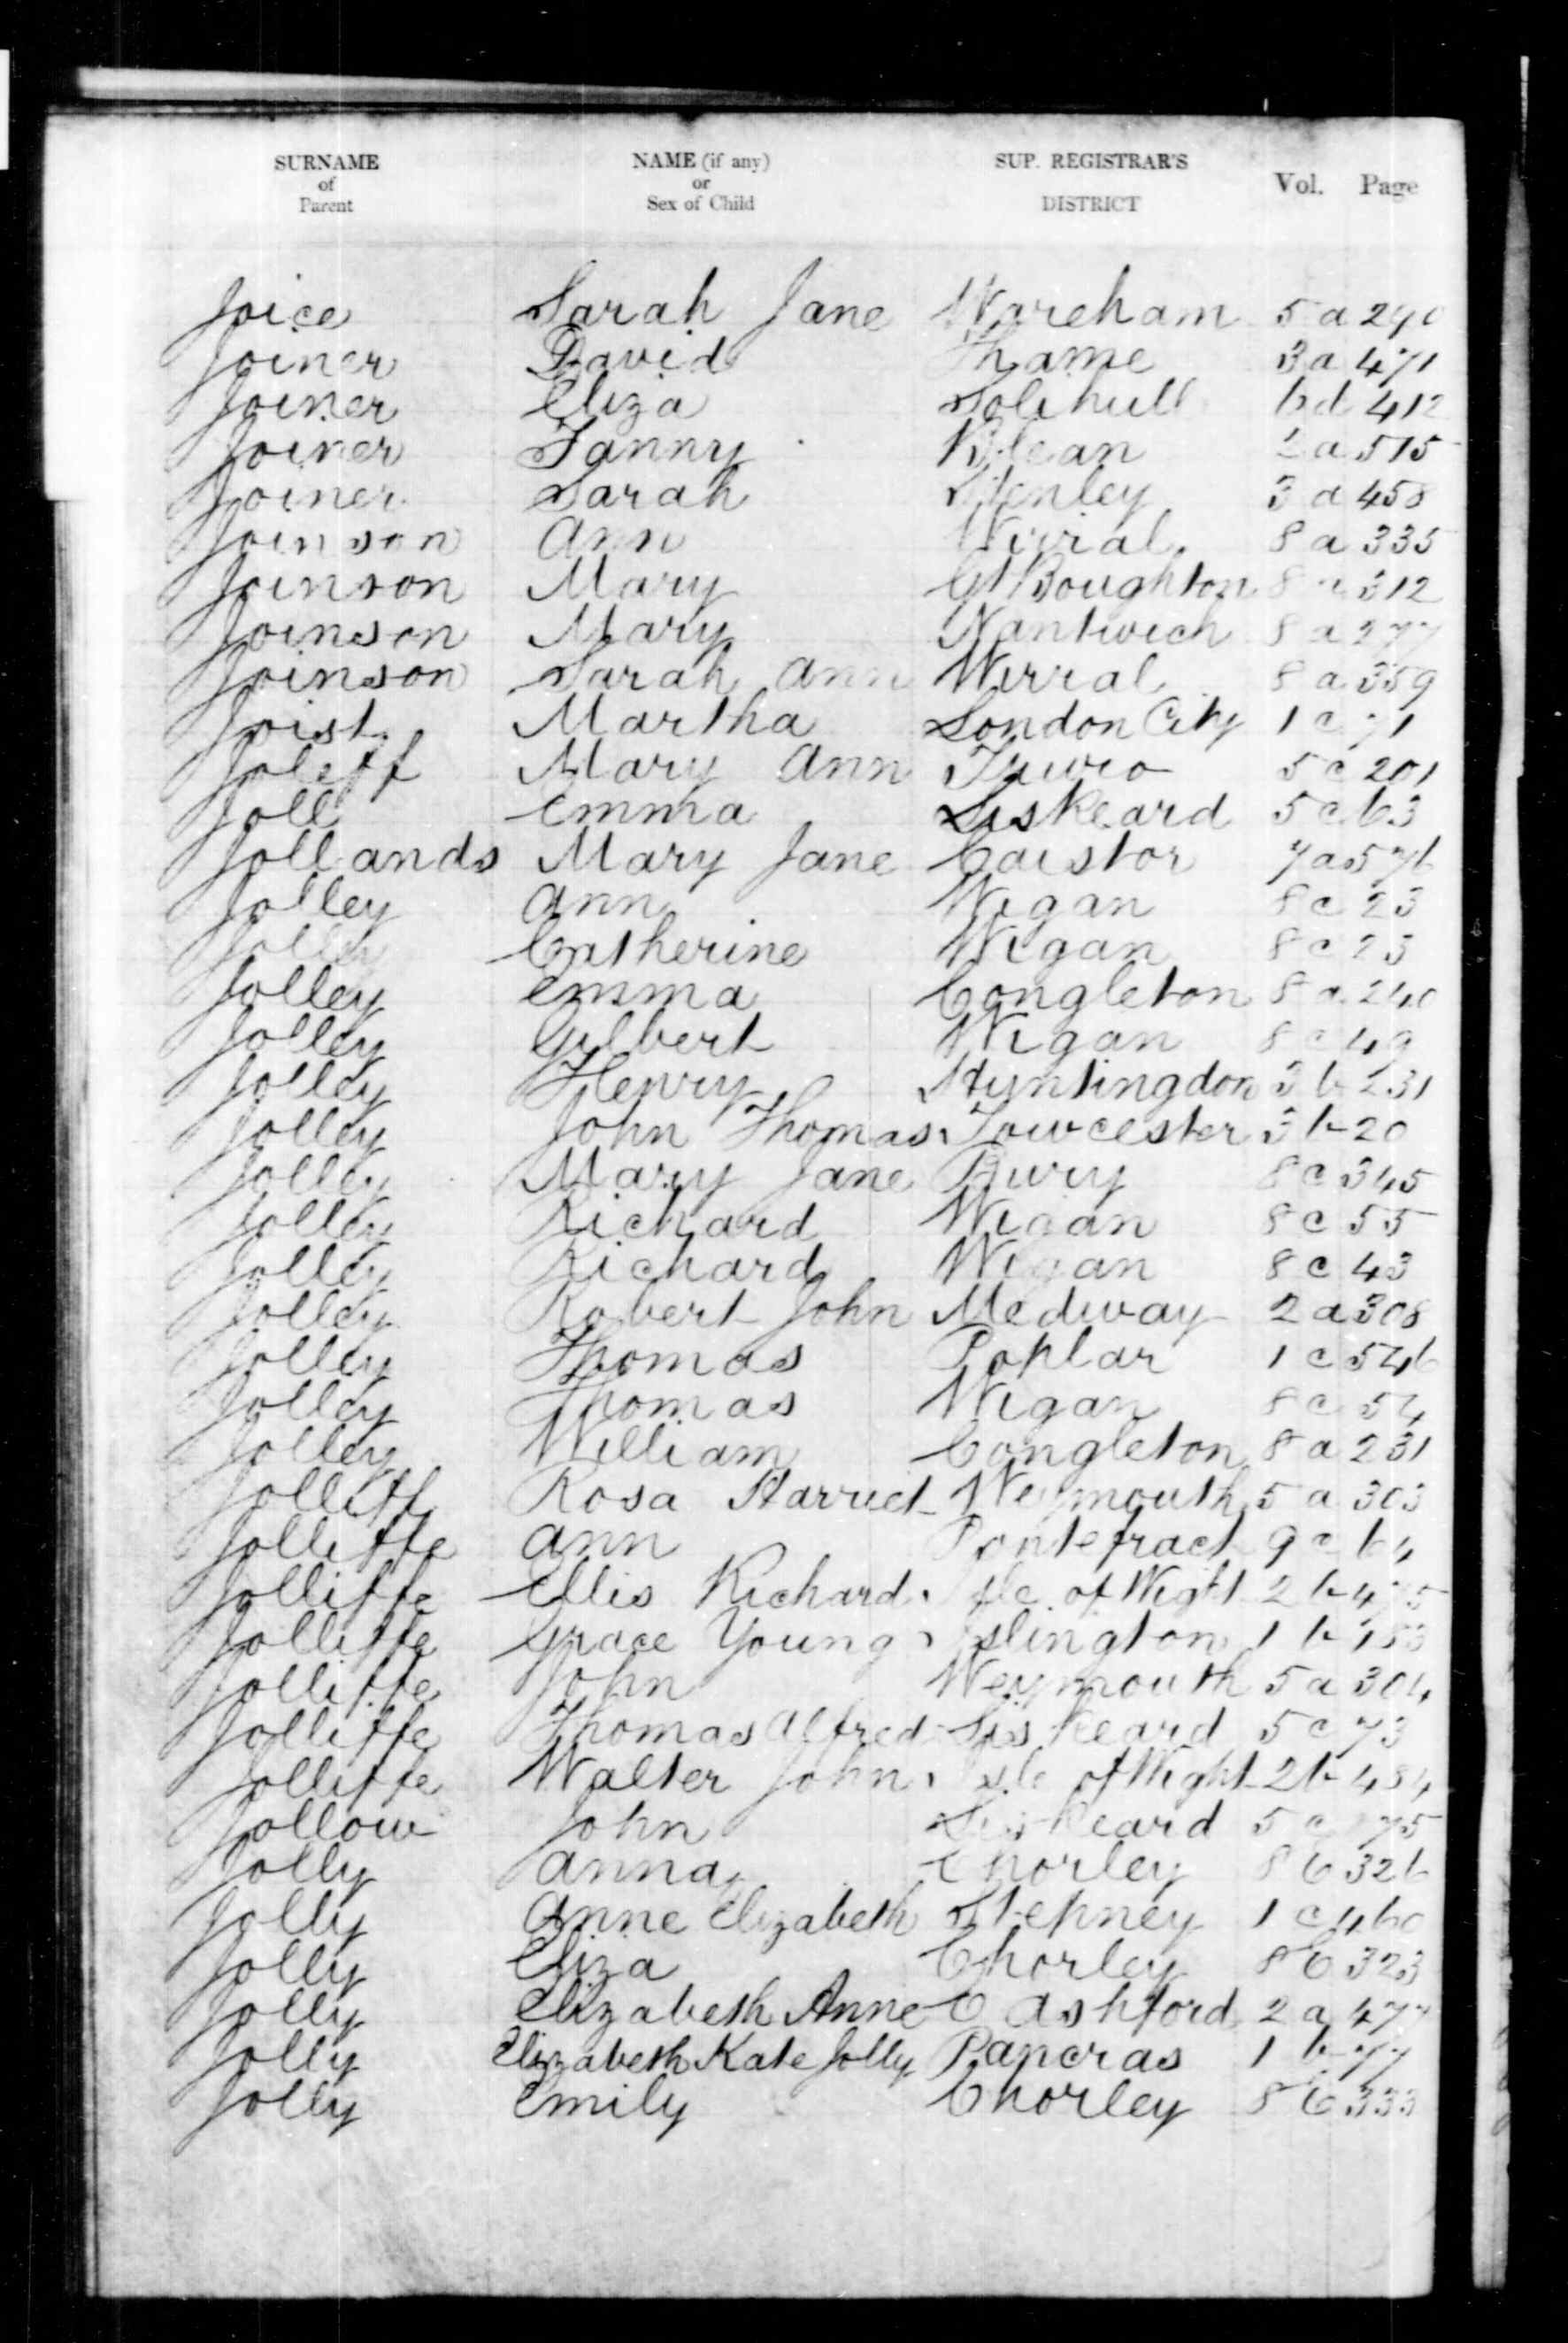 SURNAME of Parent NAME (if any) or Sex of Child SUP. REGISTRAR'S DISTRICT Vol. Page
Joice Sarah Jane Wareham 5a 290
Joiner David Thame 3a 471
Joiner Eliza Solihull 6d 412
Joiner Fanny Blean 2a 515
Joiner Sarah Henley 3a 458
Joinson Ann Wirral 8a 335
Joinson Mary Gt Boughton 8a 312
Joinson Mary Nantwich 8a 277
Joinson Sarah Ann Wirral 8a 359
Joist Martha London City 1c 71
Joleff Mary Ann Truro 5c 201
Joll Emma Liskeard 5c 63
Jollands Mary Jane Caistor 7a 576
Jolley Ann Wigan 8c 23
Jolley Catherine Wigan 8c 23
Jolley Emma Congleton 8a 240
Jolley Gilbert Wigan 8c 49
Jolley Henry Huntingdon 3b 231
Jolley John Thomas Towcester 3b 20
Jolley Mary Jane Bury 8c 345
Jolley Richard Wigan 8c 55
Jolley Richard Wigan 8c 43
Jolley Robert John Medway 2a 308
Jolley Thomas Poplar 1c 546
Jolley Thomas Wigan 8c 54
Jolley William Congleton 8a 231
Jolliff Rosa Harriet Weymouth 5a 303
Jolliffe Ann Pontefract 9c 64
Jolliffe Ellis Richard Isle of Wight 2b 475
Jolliffe Grace Young Islington 1b 183
Jolliffe John Weymouth 5a 304
Jolliffe Thomas Alfred Liskeard 5c 73
Jolliffe Walter John Isle of Wight 2b 484
Jollow John Liskeard 5c 75
Jolly Anna Chorley 8e 326
Jolly Anne Elizabeth Stepney 1c 460
Jolly Eliza Chorley 8e 323
Jolly Elizabeth Anne C Ashford 2a 477
Jolly Elizabeth Kate Jolly Pancras 1b 77
Jolly Emily Chorley 8e 333